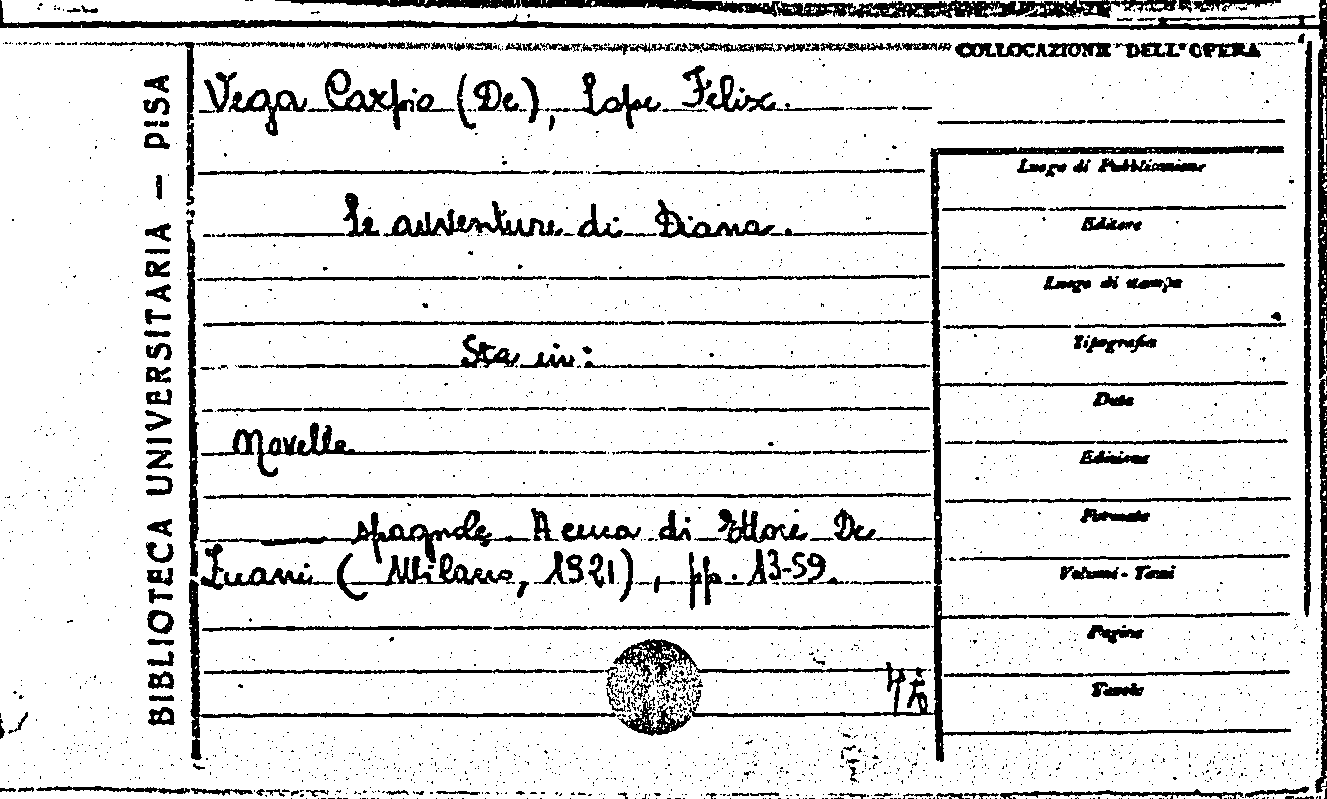 BIBLIOTECA UNIVERSITARIA — PISA
Vega Carpio (De), Lope Felix.
Le avventure di Diana.
Sta in:
Novelle
— spagnole. A cura di Ettore De
Zuani (Milano, 1921), pp. 13-59.
COLLOCAZIONE DELL'OPERA
Luogo di Pubblicazione
Editore
Luogo di stampa
Tipografia
Data
Edizione
Formato
Volumi - Tomi
Pagine
Tavole